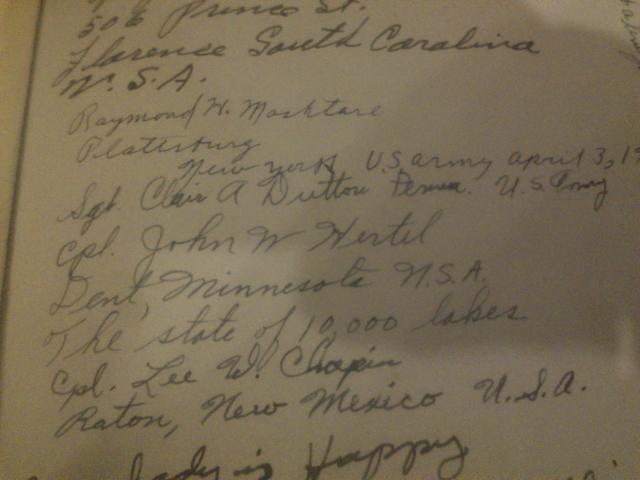 506 Prince St.
Florence South Carolina
U.S.A.
Raymond H. Mashtare
Platteburg
New York U.S army april 3, 19
Sgt. Clair A Dutton Penna. U.S. Army
Cpl. John W Hertel
Dent, Minnesota U.S.A.
The state of 10,000 lakes
Cpl. Lee W. Chapin
Raton, New Mexico U.S.A.
lady is Happy